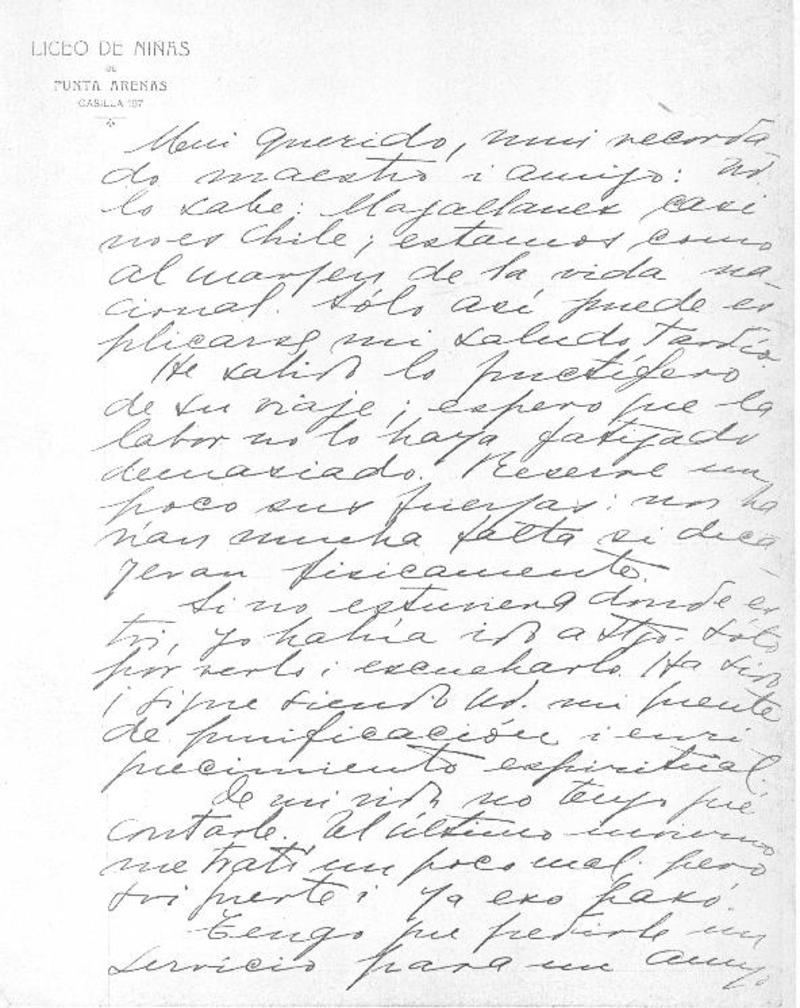 LICEO DE NIÑAS
DE
PUNTA ARENAS
CASILLA 197
Mui querido, mui recorda
do maestro i amigo: Ud.
lo sabe: Magallanes casi
no es Chile; estamos como
al marjen de la vida na-
cional. Sólo así puede es
plicarse mi saludo tardío.
He sabido lo fructífero
de su viaje; espero que la
labor no lo haya fatigado
demasiado. Reserve un
poco sus fuerzas: nos ha
rían mucha falta si deca-
yeran físicamente.
Si no estuviera donde es
toi, yo habría ido a Stgo. sólo
por verlo i escucharlo. Ha sido
i sigue siendo Ud. mi fuente
de purificación i enri
quecimiento espiritual.
De mi vida no tengo qué
contarle. El último invierno
me trató un poco mal; pero
soi fuerte i ya eso pasó.
Tengo que pedirle un
servicio para un amigo